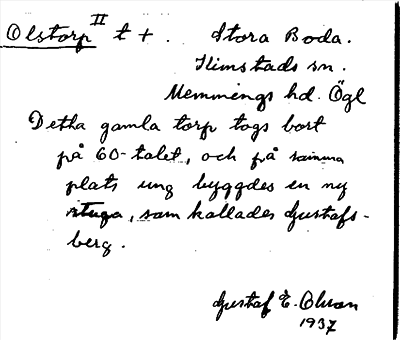 Olstorp II t +. Stora Boda.
Kimstads sn.
Memmings hd. Ögl
Detta gamla torp togs bort
på 60-talet, och på samma
plats ung byggdes en ny
stuga, som kallades Gustafs-
berg.
Gustaf E. Olsson
1937